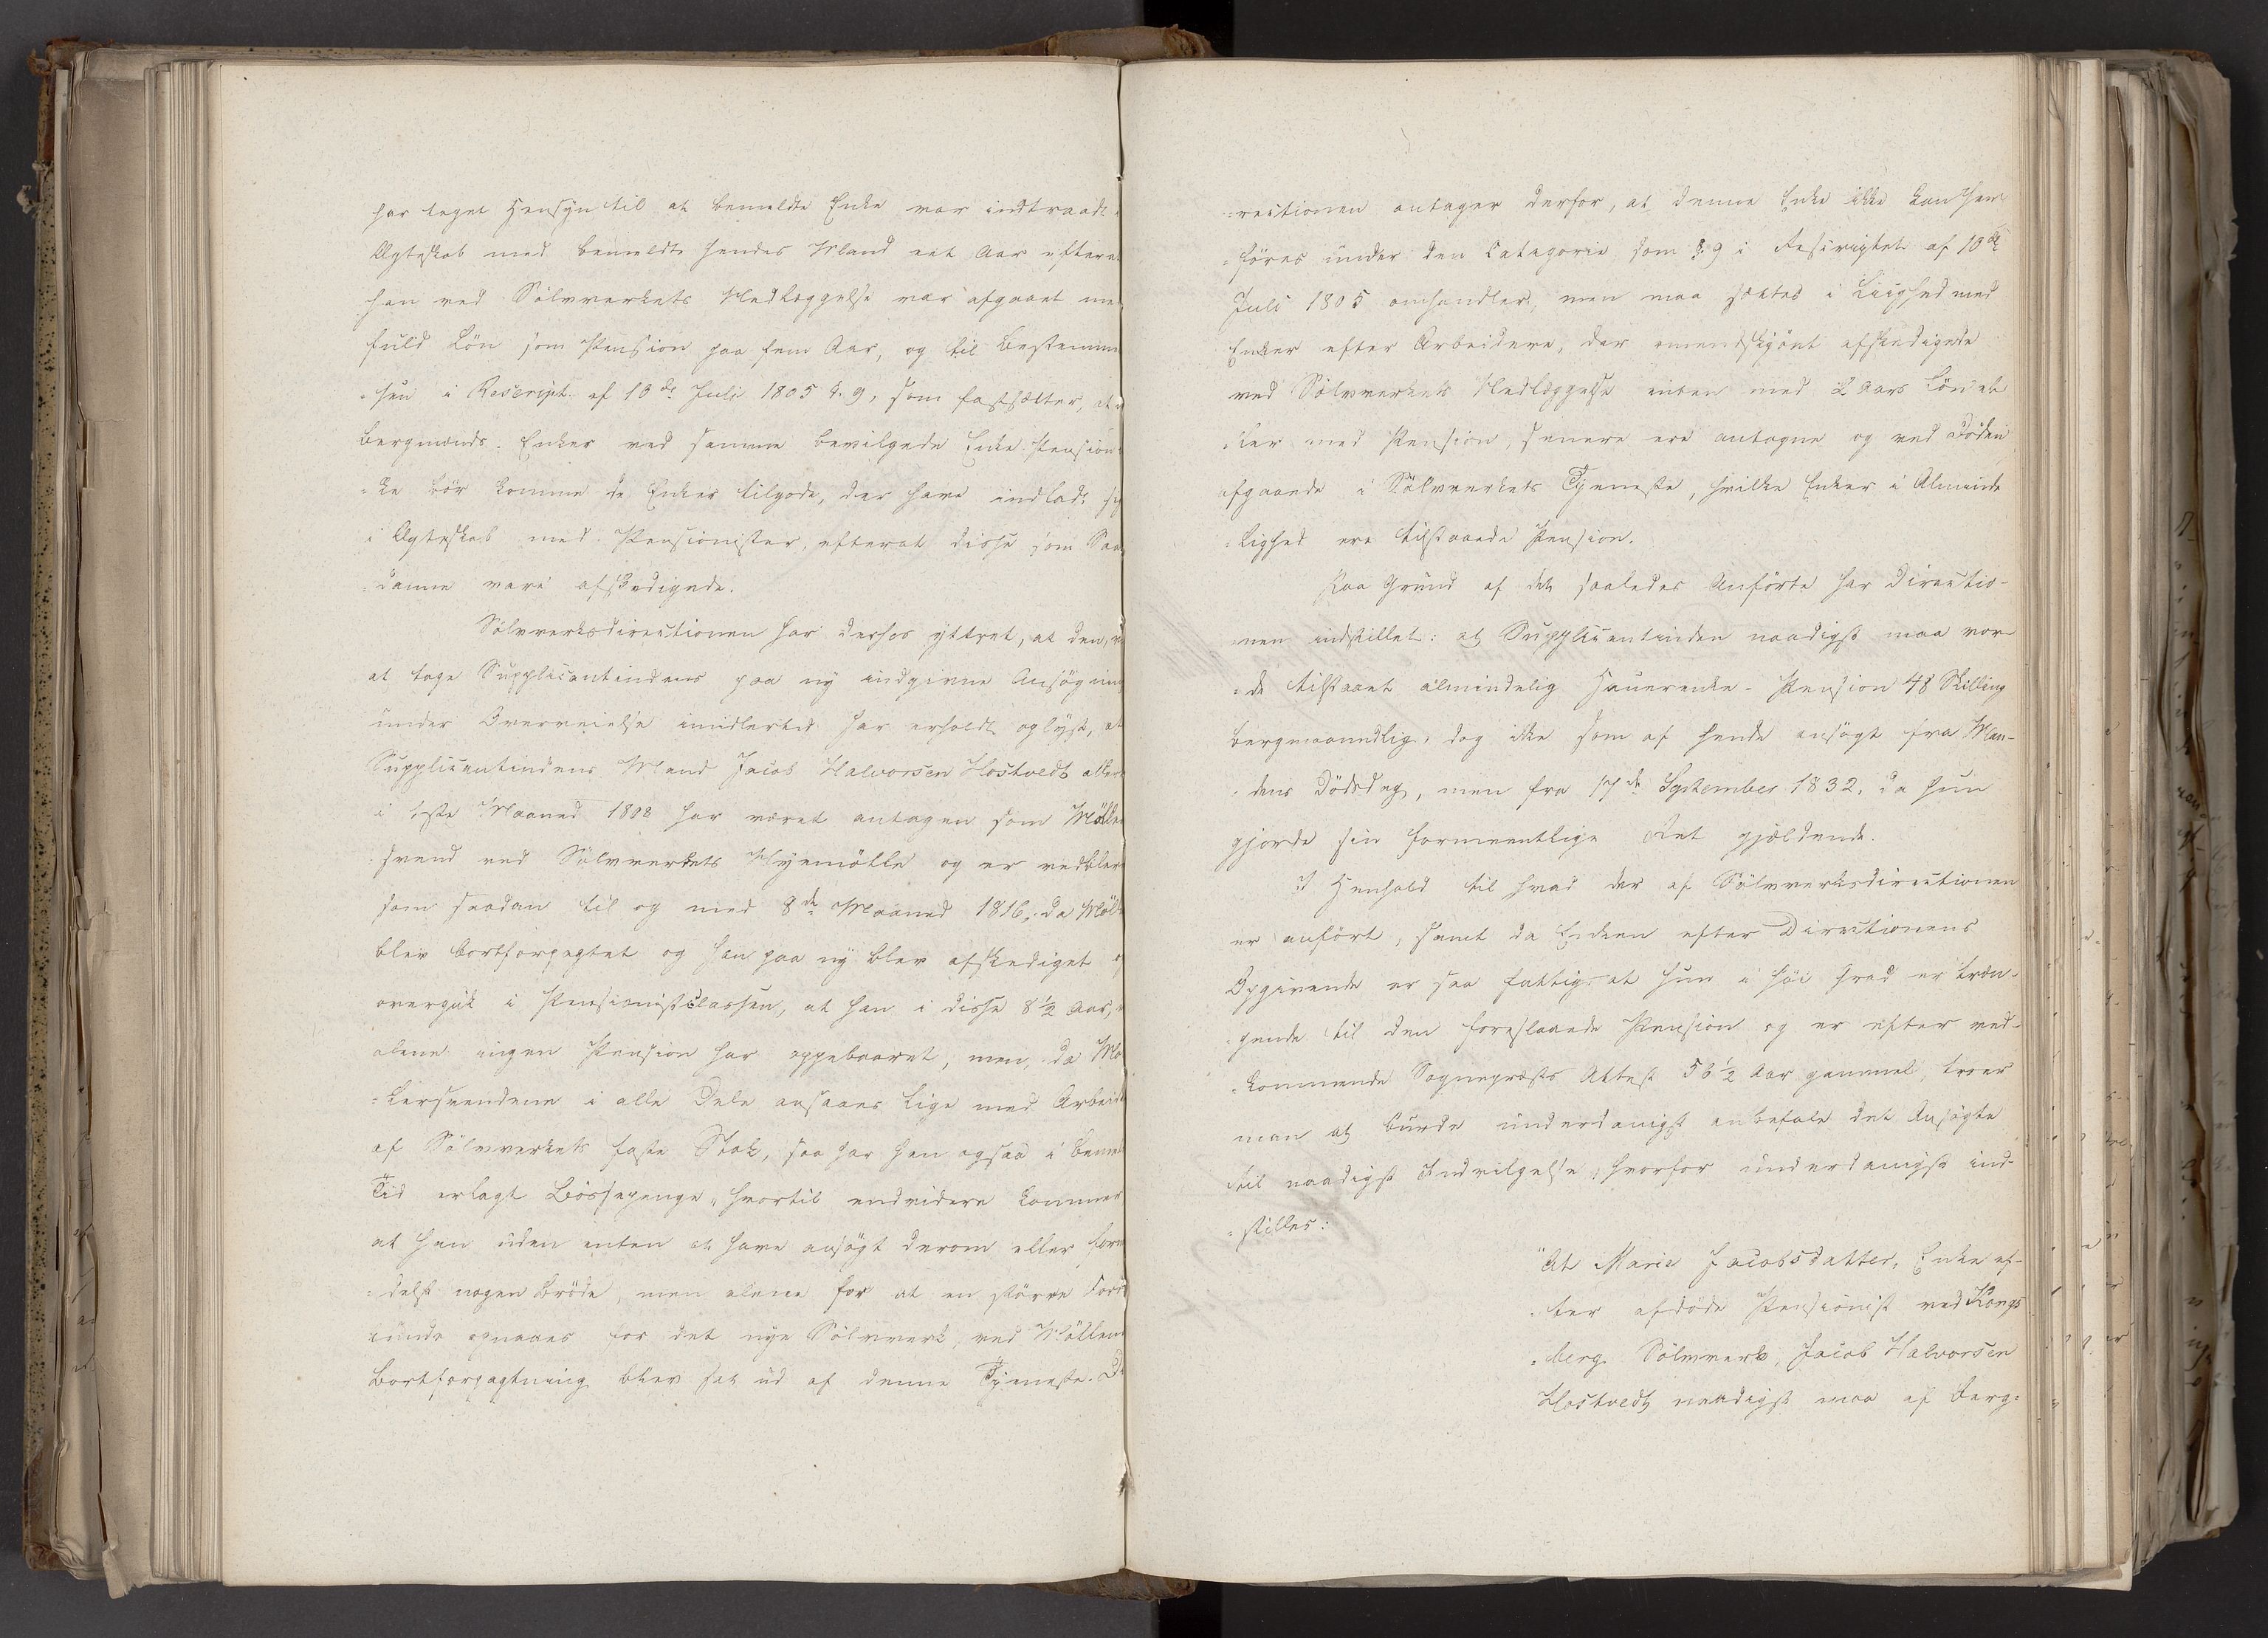 har taget Hensyn til at bemeldte Enke var indtraadt
Ægteskab med bemeldte hendes Mand eet Aar efterat
han ved Sølvverkets Nedlæggelse var afgaaet me
fuld Løn som Pension paa fem Aar, og til Bestemme
-sen i Rescript af 10de Juli 1805 §. 9, som fastsætter, at
Bergmands-Enker ved samme bevilgede Enke-Pension
-ke bør komme de Enker tilgode, der have indladt sig
i Ægteskab med Pensionister, efterat disse som Saa
-danne vare afskedigede.
Sølvverksdirectionen har derhos yttret, at den, v
at tage Supplicantindens paa ny indgivne Ansøgning
under Overveielse imidlertid har erholdt oplyst, at
Supplicantindens Mand Jacob Halvorsen Hostvedt aller
i 1ste Maaned 1808 har været antagen som Mølle
-svend ved Sølvverkets Nyemølle og er vedblev
som saadan til og med 8de Maaned 1816, da Møll
blev bortforpagtet og han paa ny blev afskediget og
overgik i Pensionistclassen, at han i disse 8½ Aar,
alene ingen Pension har oppebaaret, men, da Mø
-lersvendene i alle Dele ansaaes lige med Arbeid
af Sølvverkets faste Stok, saa har han ogsaa i bemel
Tid erlagt Bøssepenge, hvortil endvidere kommer
at han uden enten at have ansøgt derom eller forv
-delst nogen Brøde, men alene for at en større Ford
kunde opnaaes for det nye Sølvverk, ved Møllens
Bortforpagtning blev sat ud af denne Tjeneste. Di
-rectionen antager derfor, at denne Enke ikke kan hen
-føres under den Categorie som §. 9 i Rescriptet af 10de
Juli 1805 omhandler, men maa sættes i Liighed med
Enker efter Arbeidere, der omendskjønt afskedigede
ved Sølvverkets Nedlæggelse enten med 2 Aars Løn el
-ler med Pension, senere ere antagne og ved Døden
afgaaede i Sølvverkets Tjeneste, hvilke Enker i Alminde
-lighed ere tilstaaede Pension.
Paa Grund af det saaledes Anførte har Directio-
nen indstillet: at Supplicantinden naadigst maa vor-
-de tilstaaet almindelig Hauerenke-Pension 48 Skilling
bergmaanedlig, dog ikke som af hende ansøgt fra Man-
-dens Dødsdag, men fra 17de September 1832, da hun
gjorde sin formeentlige Ret gjældende.
I Henhold til hvad der af Sølvverksdirectionen
er anført, samt da Enken efter Directionens
Opgivende er saa fattig at hun i høi Grad er træn-
-gende til den foreslaaede Pension og er efter ved-
-kommende Sognepræsts Attest 56½ Aar gammel, troer
man at burde underdanigst anbefale det Ansøgte
til naadigst Indvilgelse, hvorfor underdanigst ind-
-stilles:
"At Marie Jacobsdatter, Enke ef-
-ter afdøde Pensionist ved Kongs
-berg Sølvverk, Jacob Halvorsen
Hostvedt naadigst maa af Berg-